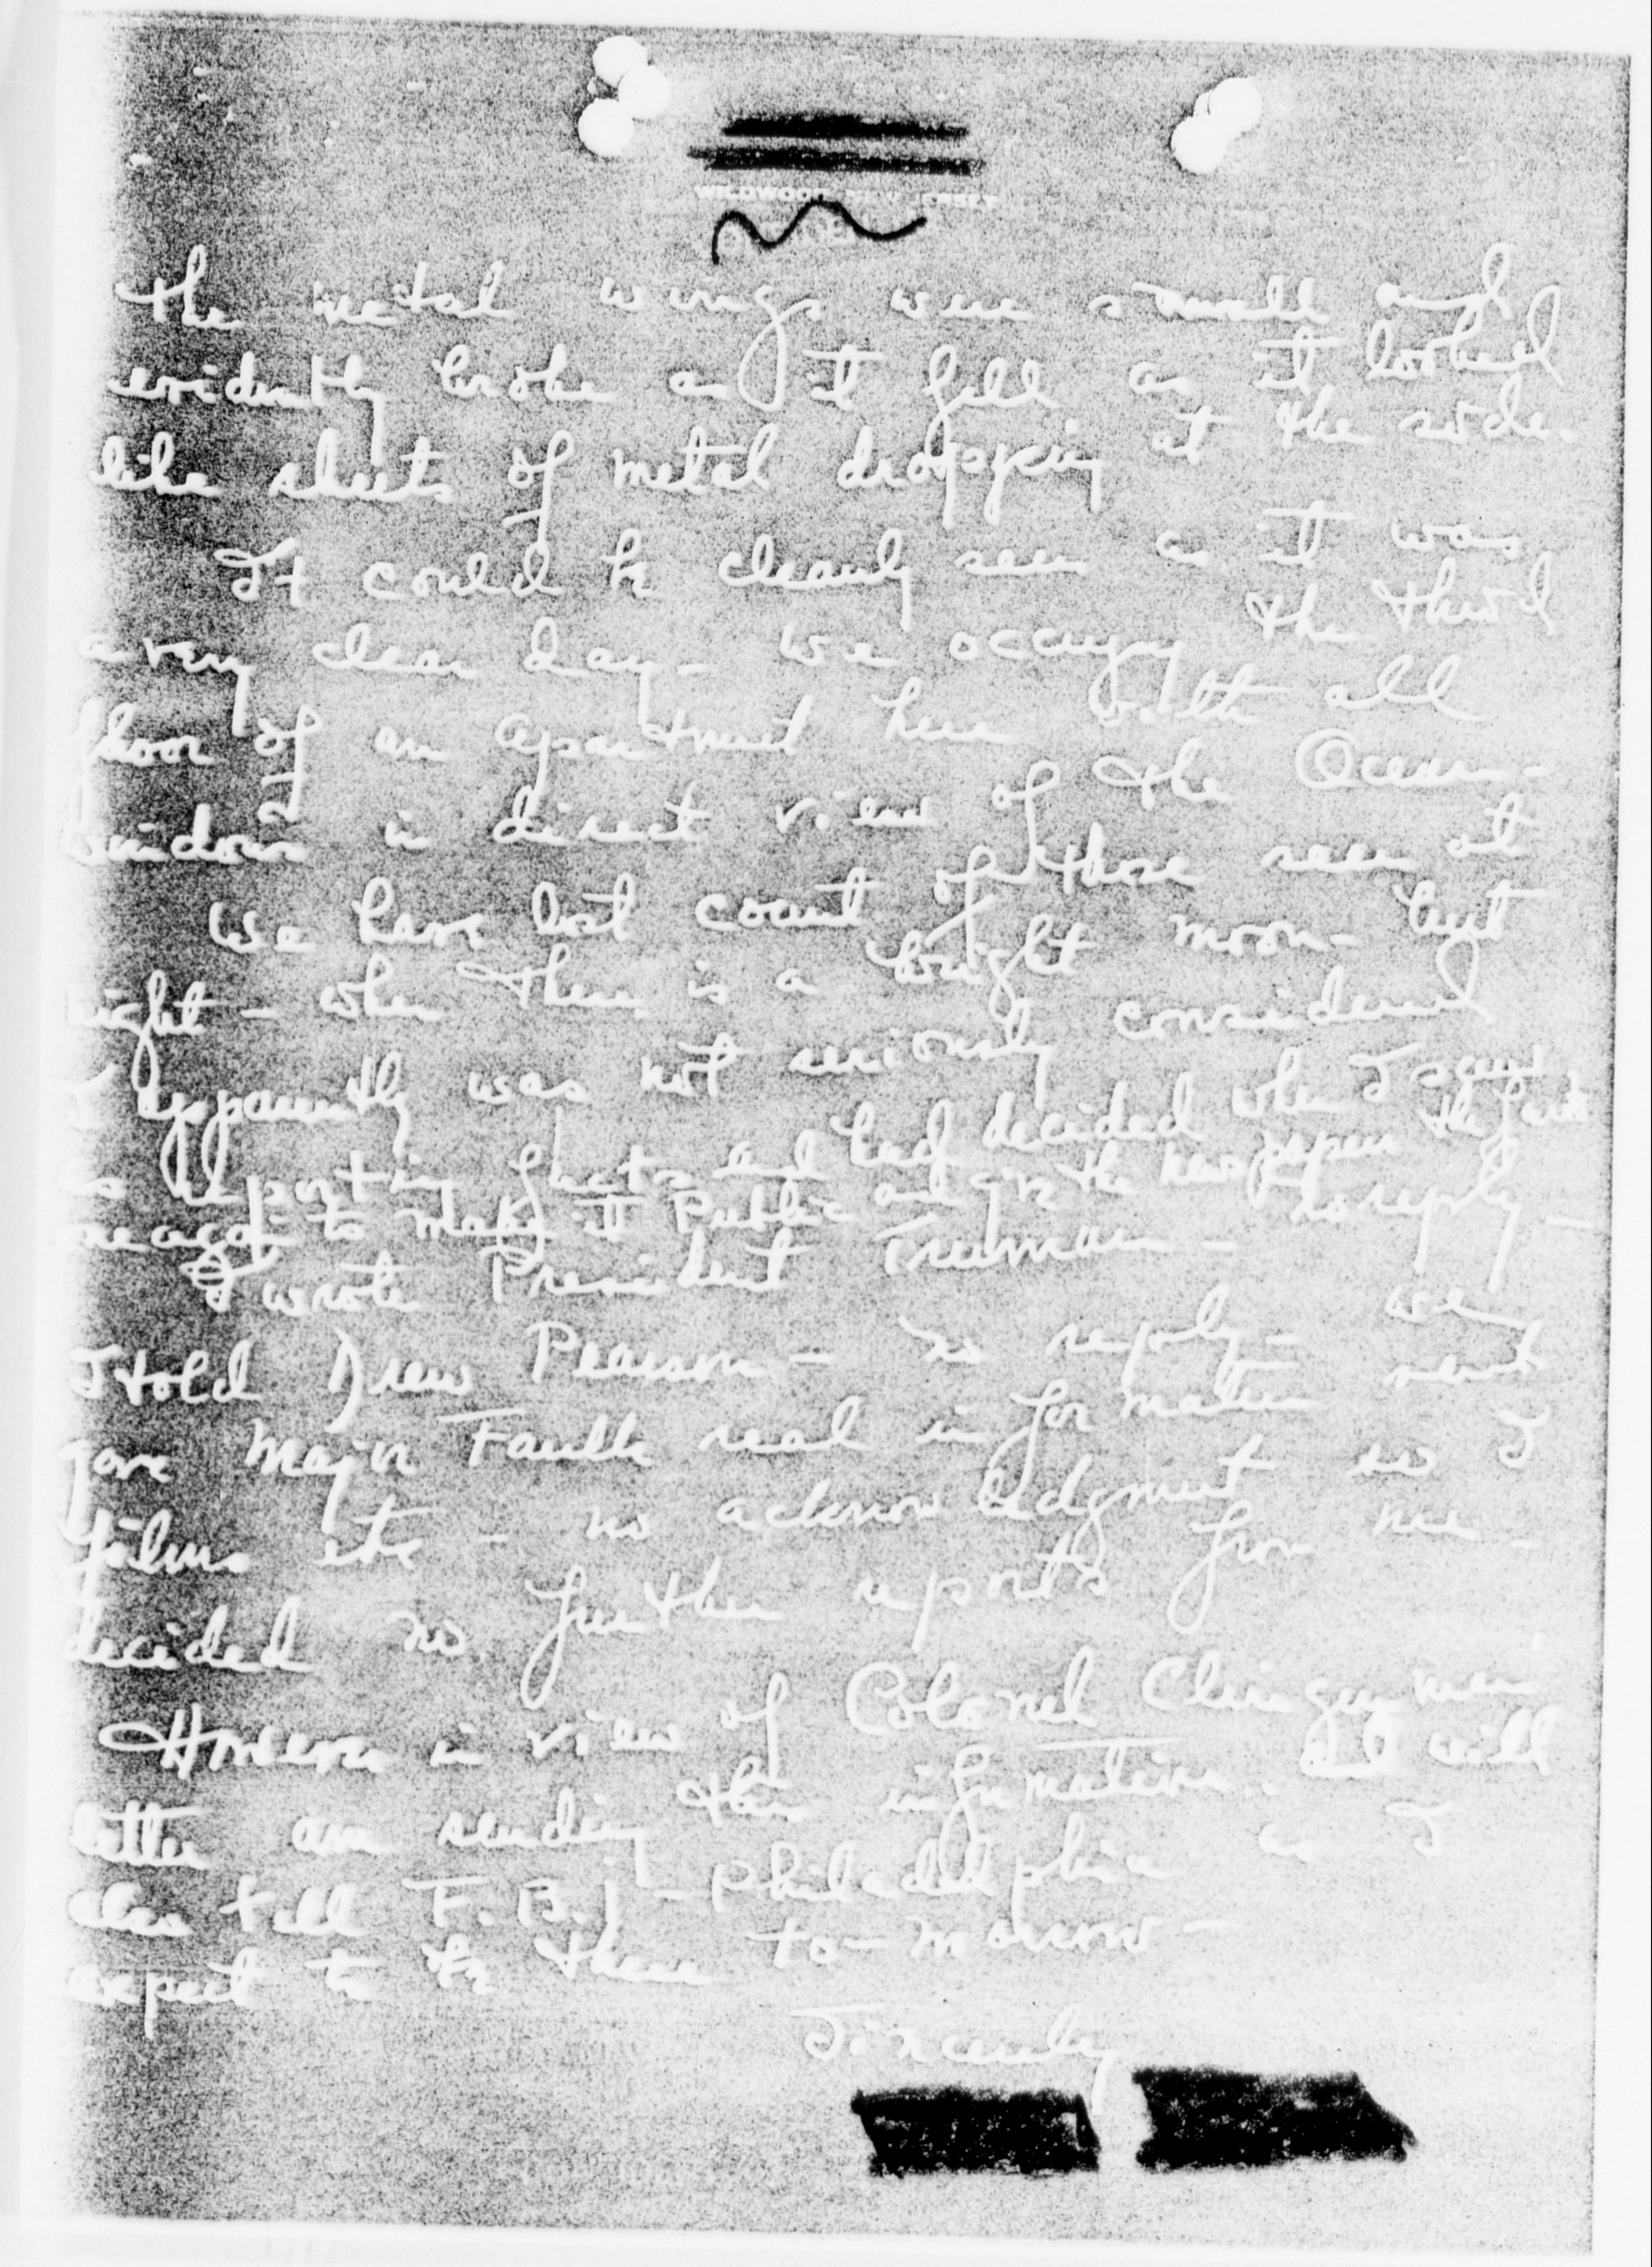 WILDWOOD, NEW JERSEY
the metal wings were small and
evidently broke as it fell as it looked
like sheets of metal dropping at the side.
It could be clearly seen as it was
a very clear day - we occupy the third
floor of an apartment here with all
windows in direct view of the Ocean -
We have lost count of those seen at
night - when there is a bright moon - but
I apparently was not seriously considered
as reporting facts and had decided when I saw
to make it Public and give the newspaper the facts
I wrote President Truman - no reply -
I told Drew Pearson - no reply - we
gave Major Faulk real information sent
films etc - no acknowledgment so I
decided no further reports from me -
However in view of Colonel Clingerman
letter am sending this information. I will
also tell F.B.I - Philadelphia as I
expect to be there to-morrow -
Sincerely